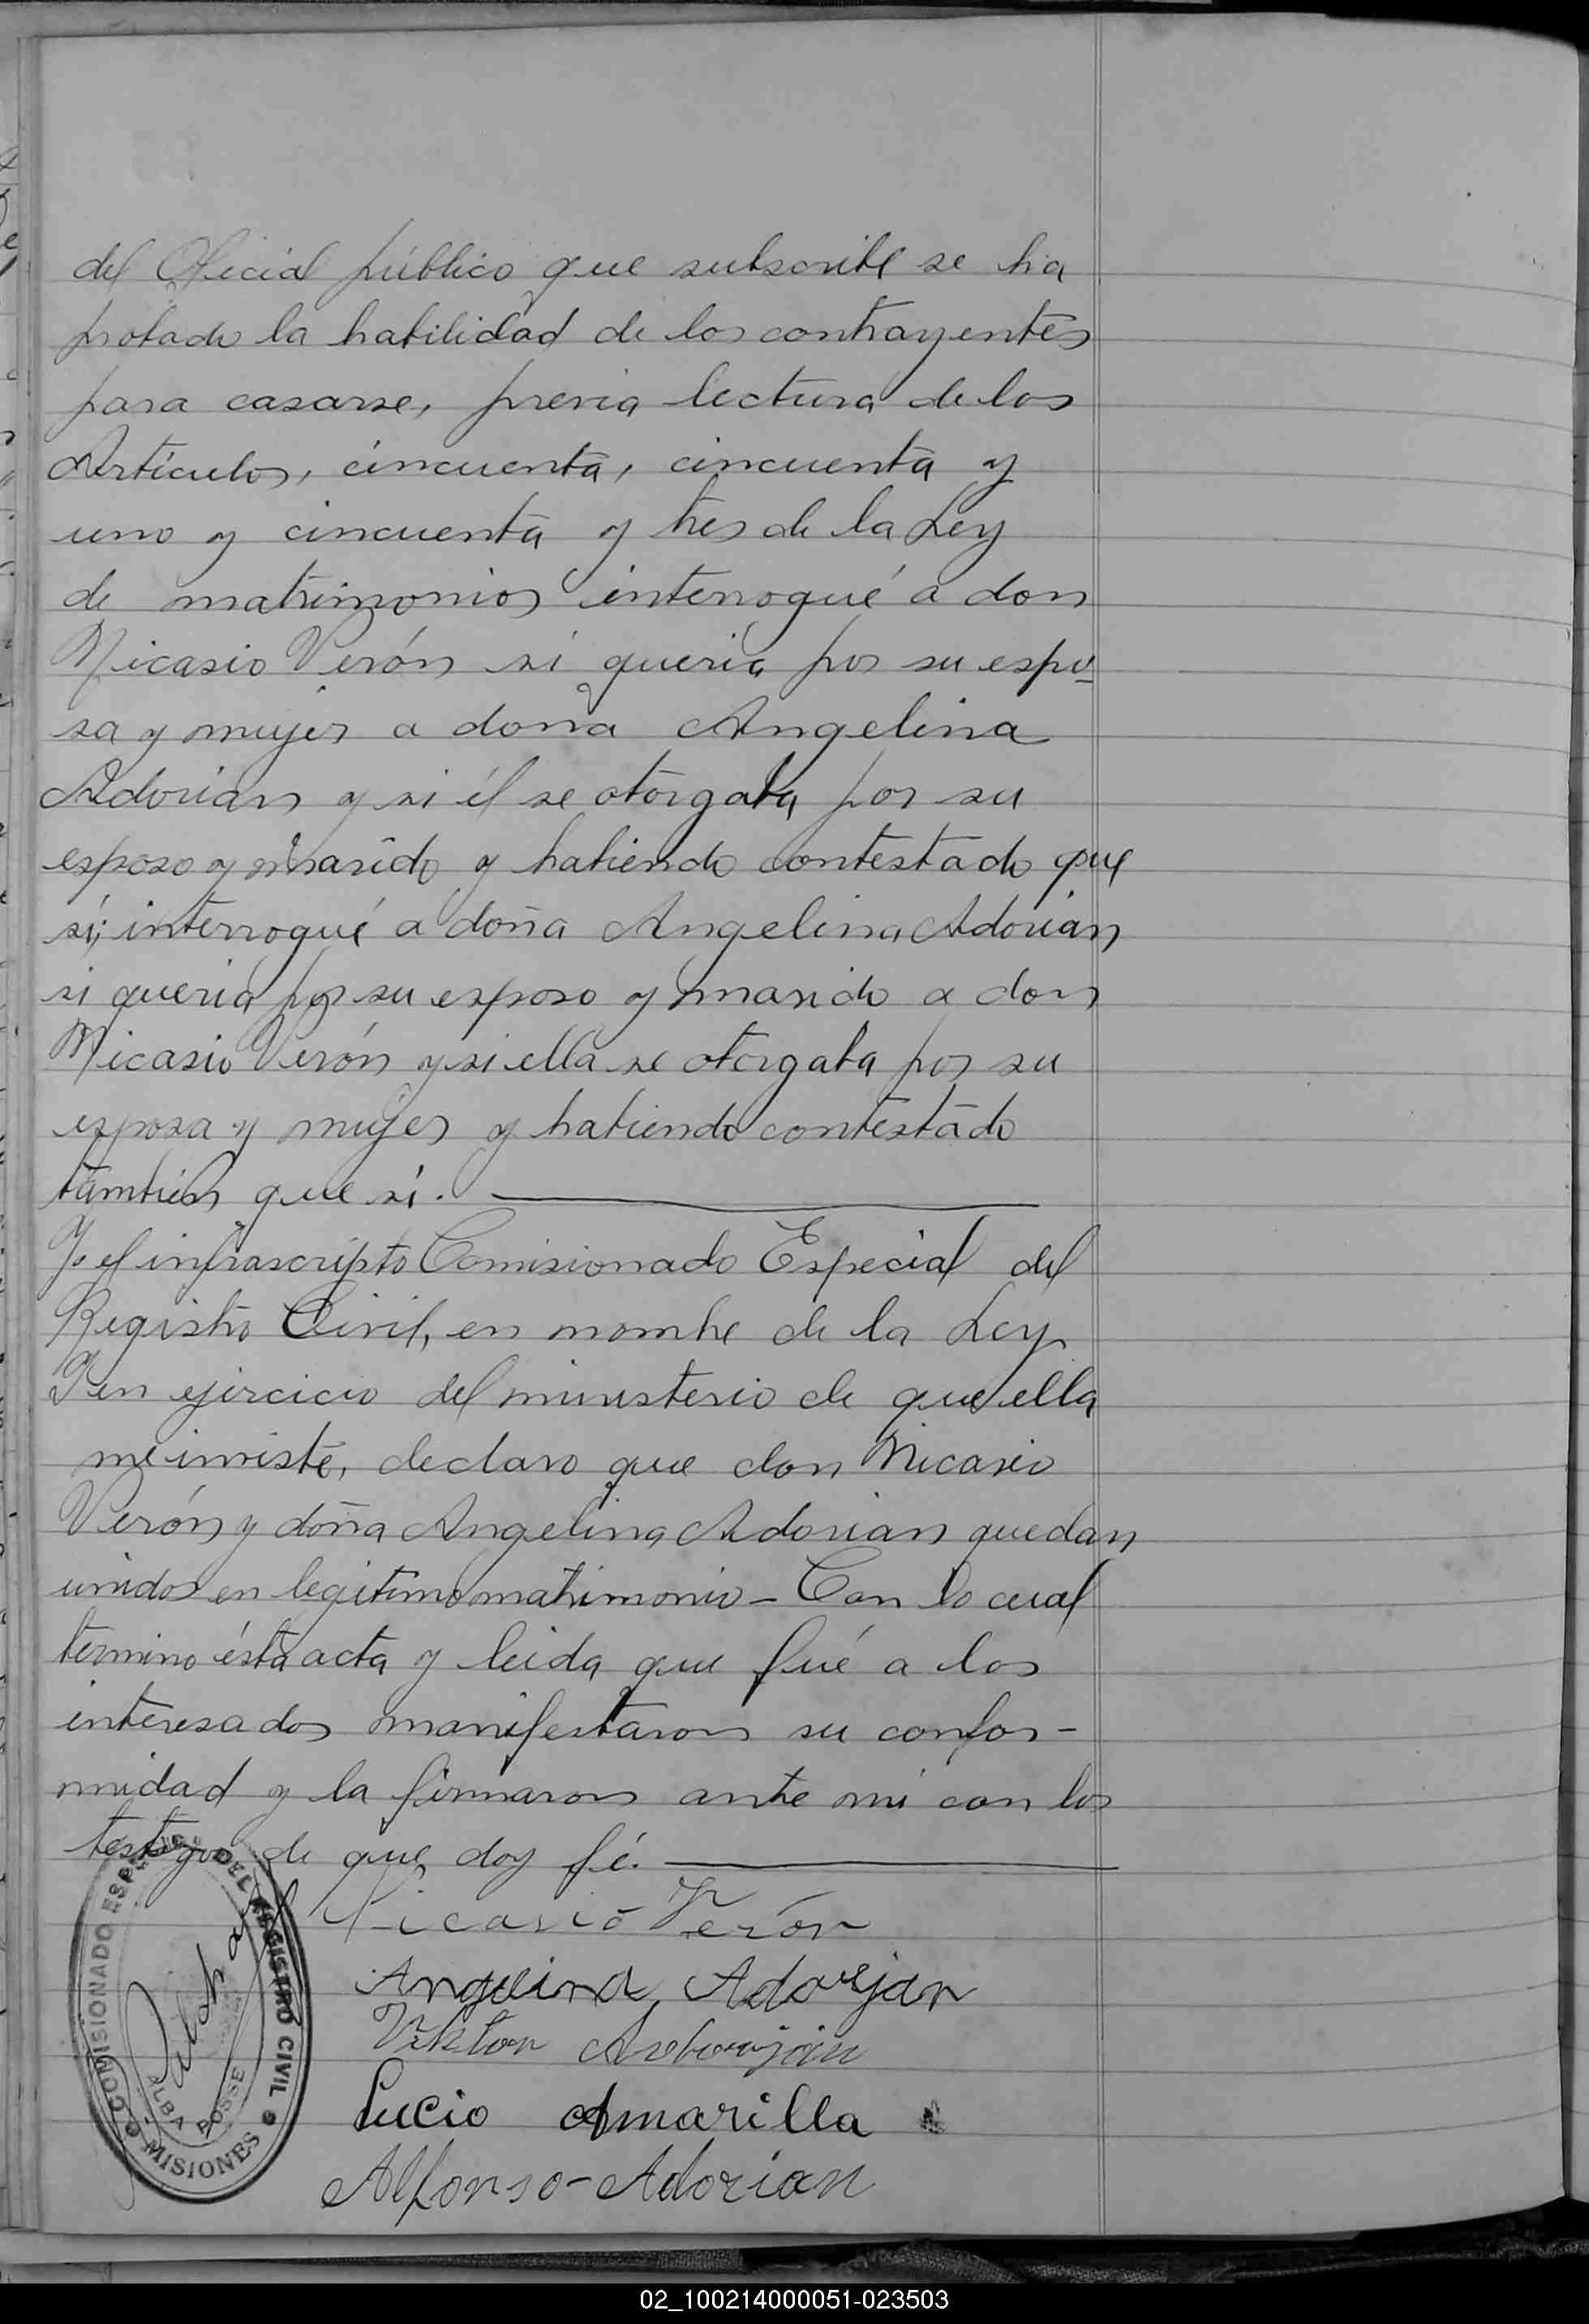 del Oficial público que subscribe se ha
probado la habilidad de los contrayentes
para casarse, previa lectura de los
Artículos, cincuenta, cincuenta y
uno y cincuenta y tres de la Ley
de matrimonios interrogué a don
Nicasio Verón si queria por su espo-
sa y mujer a doña Angelina
Adorian y si él se otorgaba por su
esposo y marido y habiendo contestado que
sí; interrogué a doña Angelina Adorian
si queria por su esposo y marido a don
Nicasio Verón y si ella se otorgaba por su
esposa y mujer y habiendo contestado
tambien que sí.
Yo el infrascripto Comisionado Especial del
Registro Civil, en nombre de la Ley
Y en ejercicio del ministerio de que ella
me inviste, declaro que don Nicasio
Verón y doña Angelina Adorian quedan
unidos en legitimo matrimonio - Con lo cual
termino ésta acta y leida que fué a los
interesados manifestaron su confor-
midad y la firmaron ante mi con los
testigos de que doy fé.
Nicasio Verón
Angelina Adorjan
Viktor Adorjan
Lucio Amarilla
Alfonso - Adorian
COMISIONADO ESPECIAL DEL REGISTRO CIVIL
ALBA POSSE
MISIONES
02_100214000051-023503